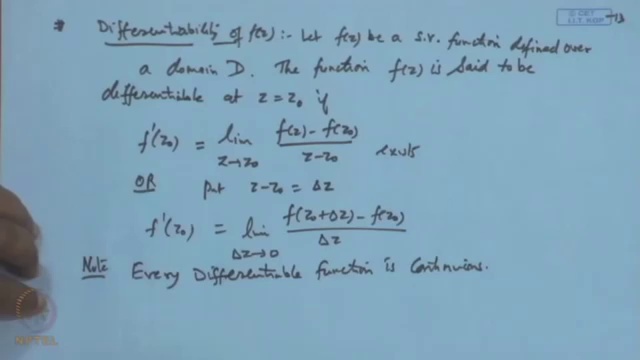 * Differentiability of f(z) :- Let f(z) be a s.v. function defined over
a domain D. The function f(z) is said to be
differentiable at z = z₀ if
f'(z₀) = lim z→z₀ f(z) - f(z₀) / z - z₀ exists
OR put z - z₀ = Δz
f'(z₀) = lim Δz→0 f(z₀+Δz) - f(z₀) / Δz
Note Every Differentiable function is continuous.
© CET
I.I.T. KGP
NPTEL